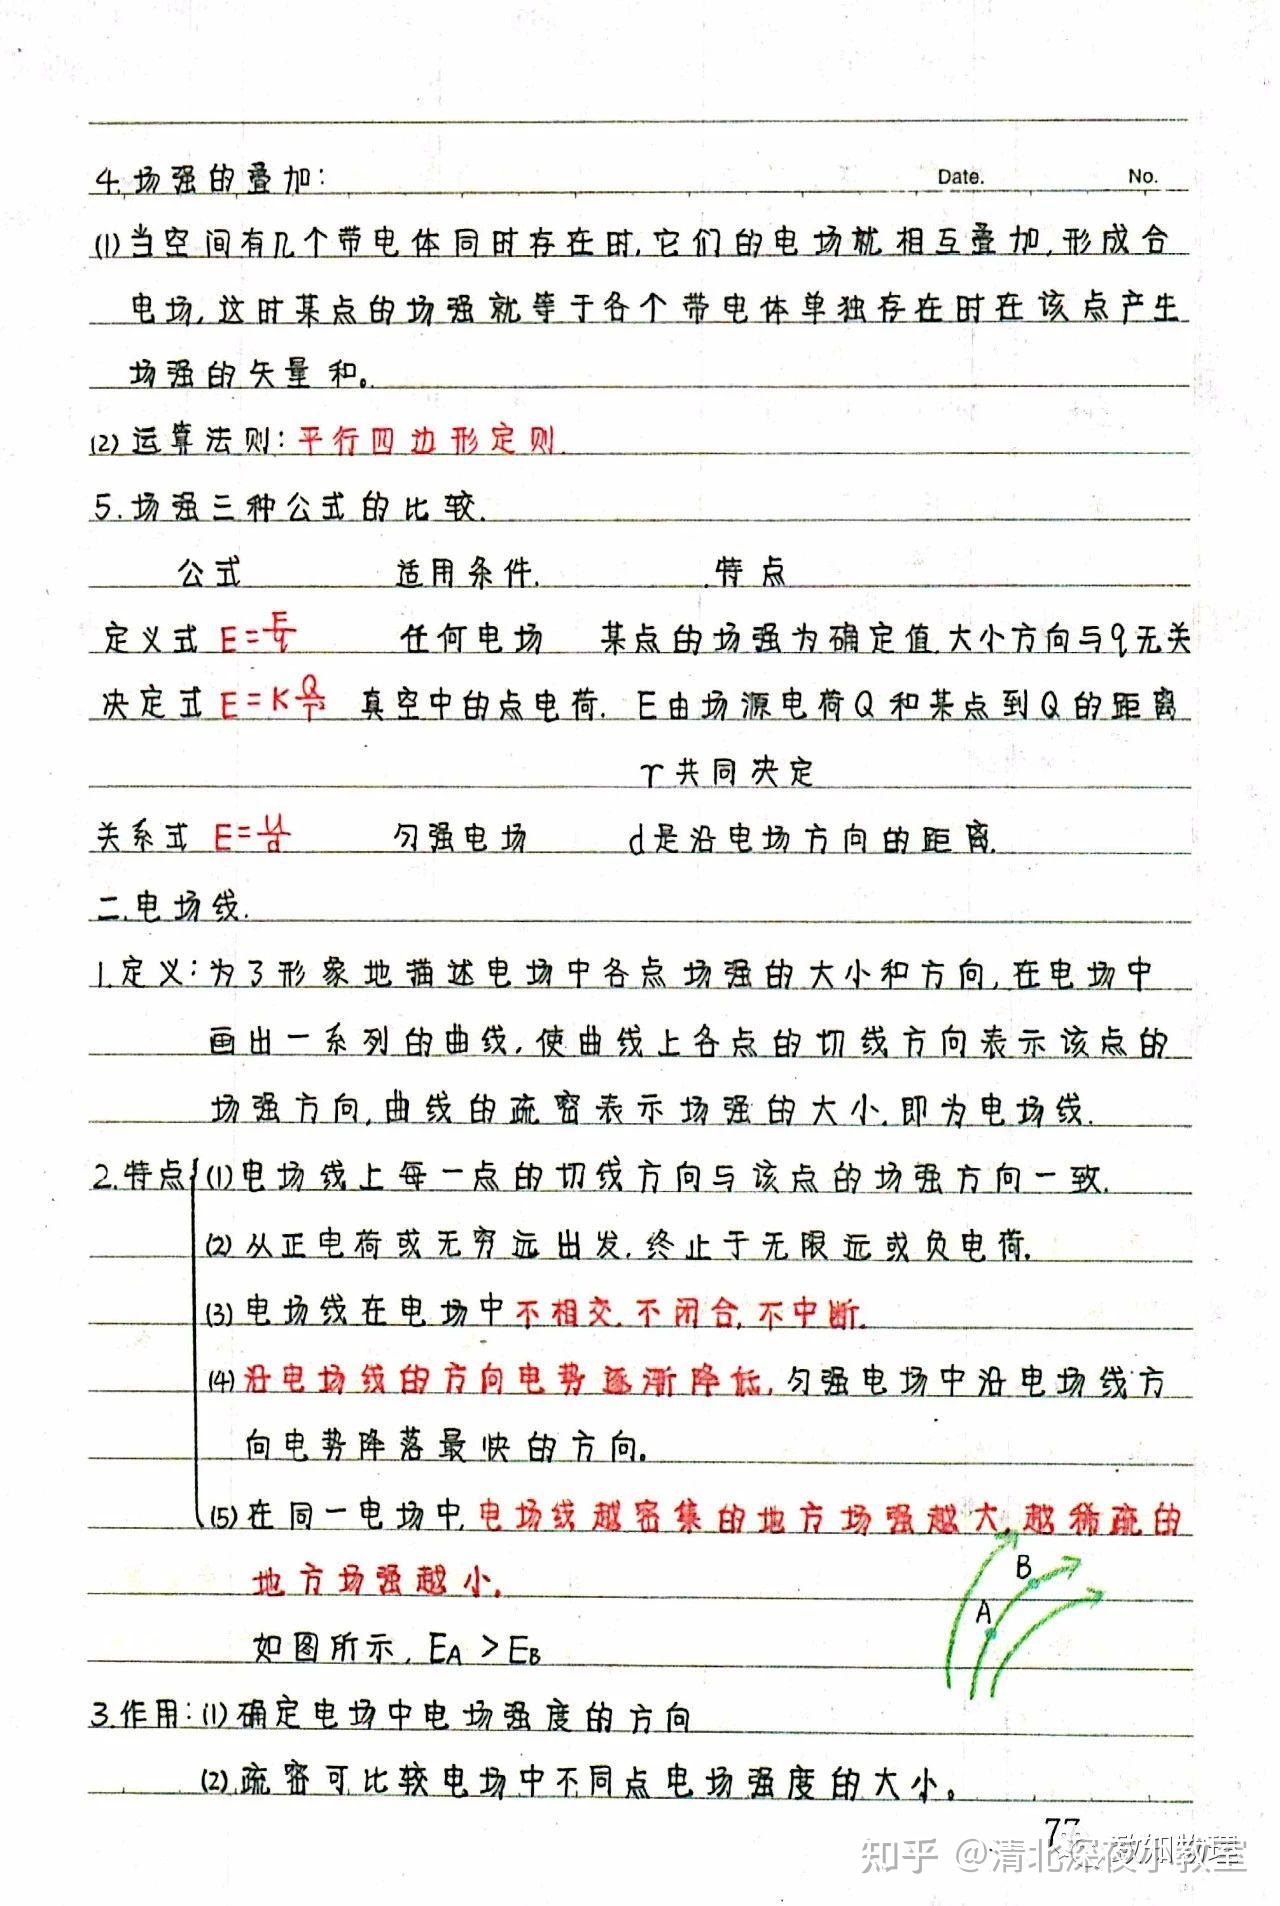 4.场强的叠加: Date. No.
(1)当空间有几个带电体同时存在时,它们的电场就相互叠加,形成合
电场,这时某点的场强就等于各个带电体单独存在时在该点产生
场强的矢量和。
(2)运算法则:平行四边形定则.
5.场强三种公式的比较.
公式 适用条件. 特点
定义式 E=F/q 任何电场 某点的场强为确定值.大小方向与q无关
决定式 E=KQ/r² 真空中的点电荷. E由场源电荷Q和某点到Q的距离
r共同决定
关系式 E=U/d 匀强电场 d是沿电场方向的距离.
二.电场线.
1.定义:为了形象地描述电场中各点场强的大小和方向,在电场中
画出一系列的曲线,使曲线上各点的切线方向表示该点的
场强方向,曲线的疏密表示场强的大小.即为电场线.
2.特点 (1)电场线上每一点的切线方向与该点的场强方向一致.
(2)从正电荷或无穷远出发.终止于无限远或负电荷.
(3)电场线在电场中不相交.不闭合,不中断.
(4)沿电场线的方向电势逐渐降低,匀强电场中沿电场线方
向电势降落最快的方向。
(5)在同一电场中,电场线越密集的地方场强越大,越稀疏的
地方场强越小.
B
A
如图所示, EA>EB
3.作用:(1)确定电场中电场强度的方向
(2)疏密可比较电场中不同点电场强度的大小。
77
知乎 @清北深夜小教室
致知物理